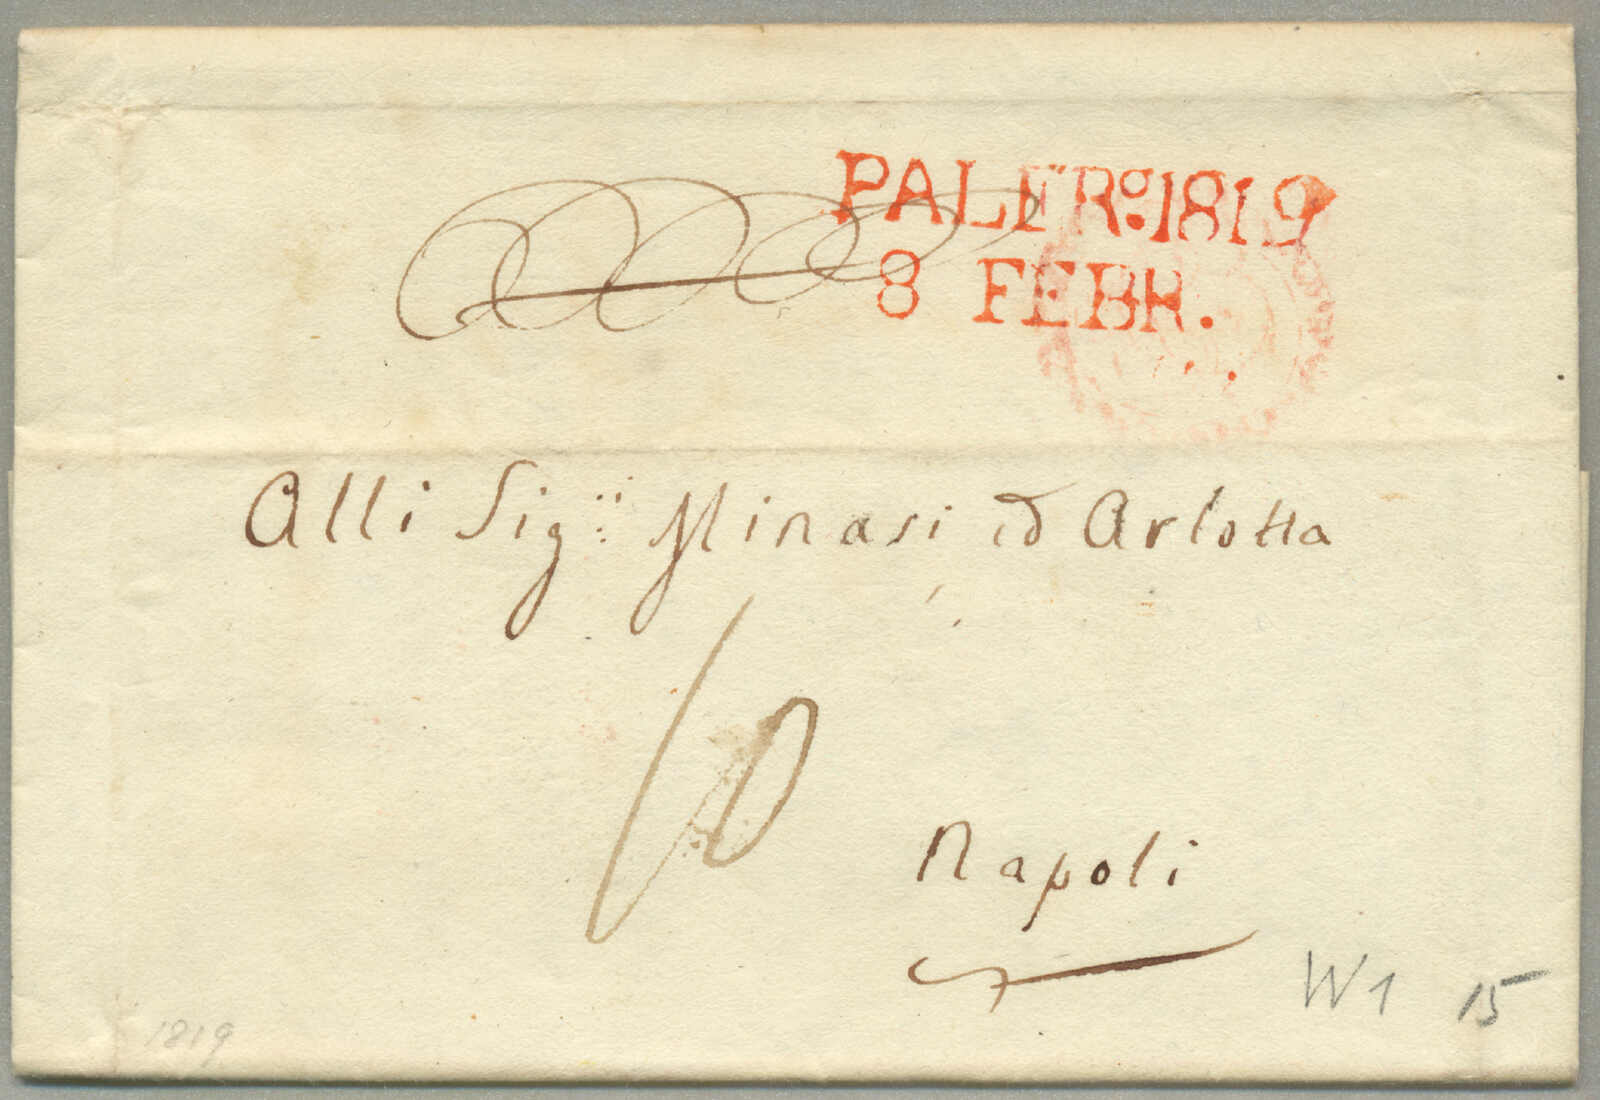 PALERº.1819
8 FEBR.
Alli Sig:ri Minasi ed Arlotta
10
Napoli
W1 15
1819